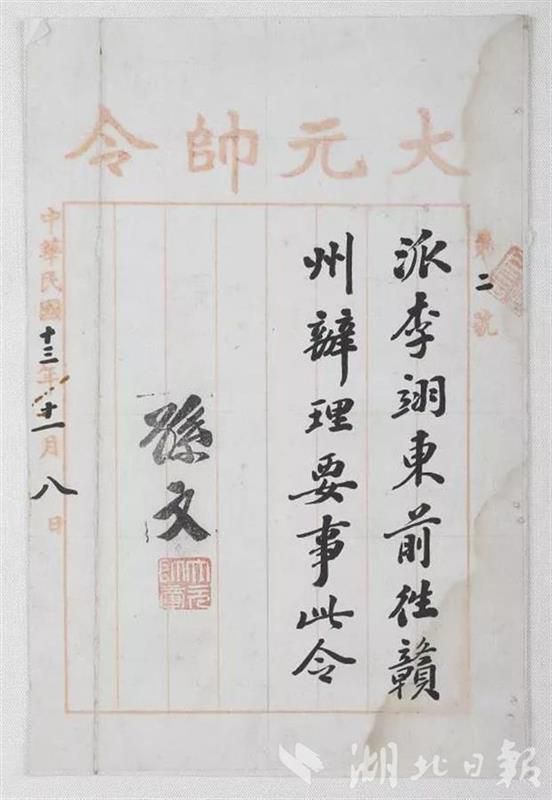 大元帥令
第二號
派李翊東前往贛
州辦理要事此令
孫文
大元帥章
中華民國十三年十一月八日
湖北日報